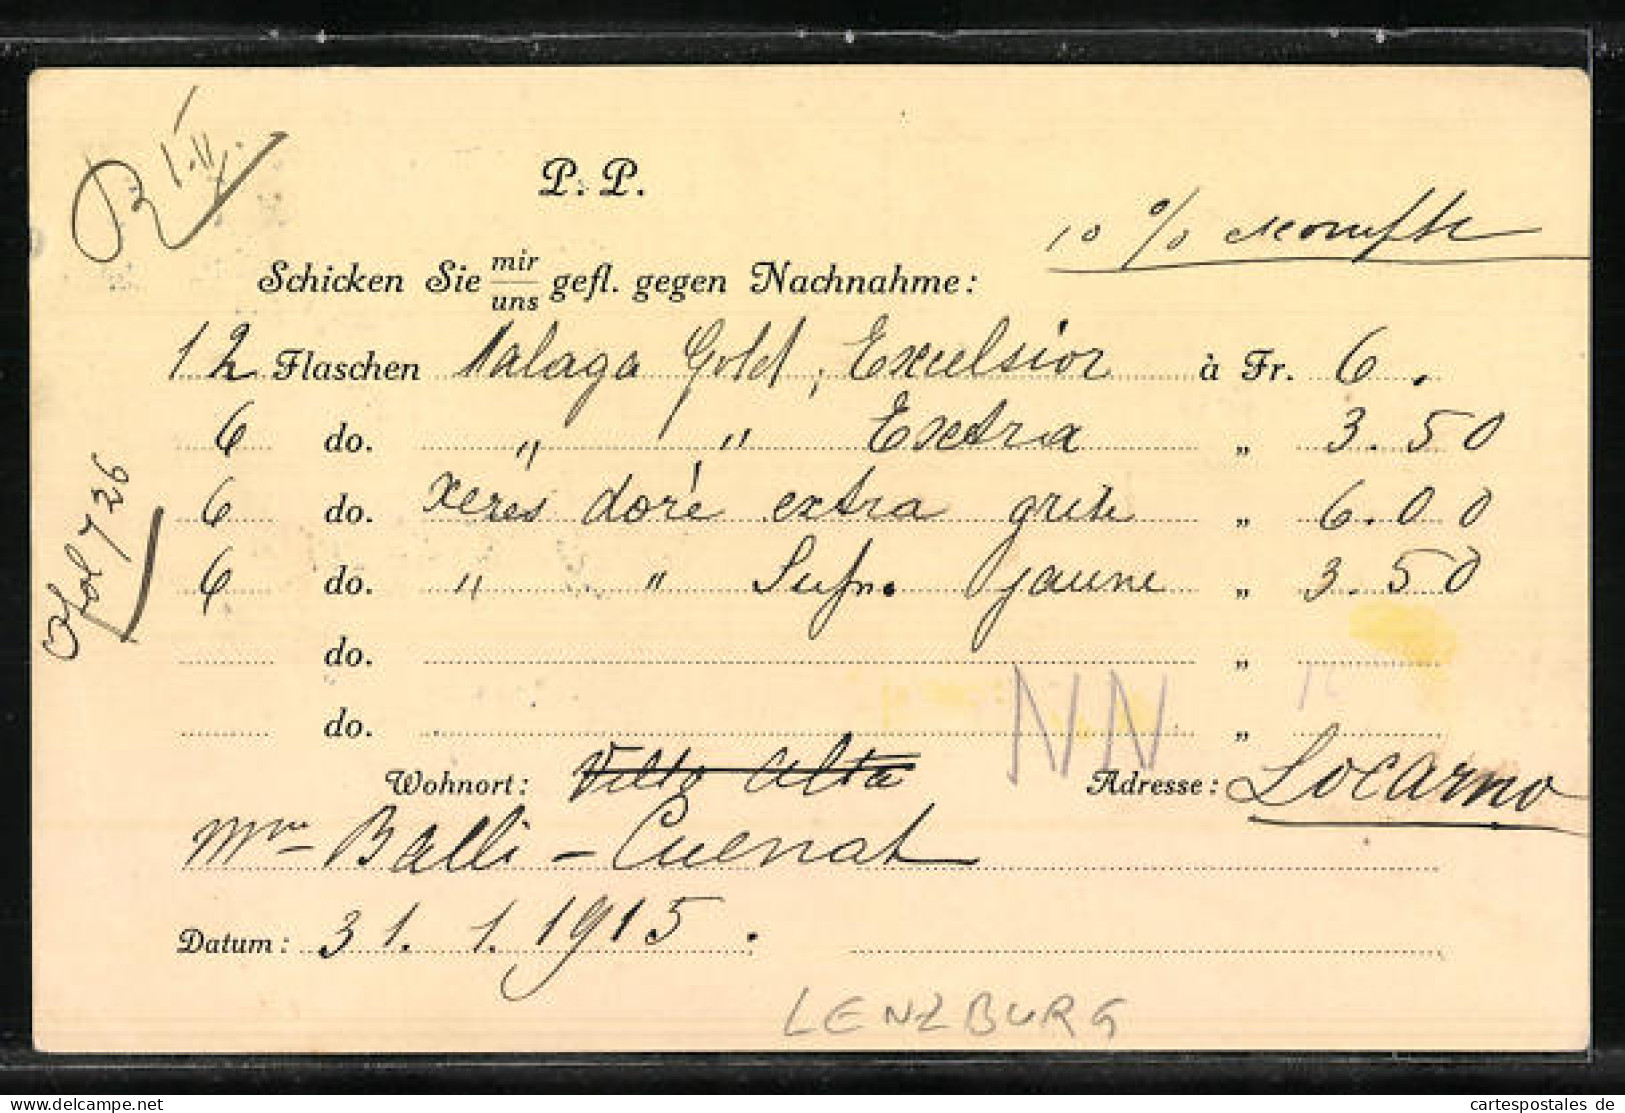 P. P.
10 %
Schicken Sie mir uns gefl. gegen Nachnahme:
12 Flaschen Malaga Gold, Excelsior à Fr. 6.
6 do. " " Extra " 3.50
6 do. Xeres doré extra " 6.00
6 do. " " Supr. jaune " 3.50
do. "
do. "
NN
Wohnort: Adresse: Locarno
Mme Balli - Cuenat
Datum: 31. 1. 1915.
LENZBURG
726
delcampe.net
cartespostales de